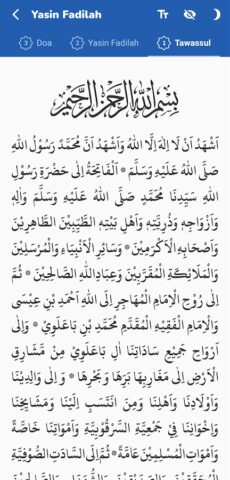 Yasin Fadilah
3 Doa 2 Yasin Fadilah 1 Tawassul
بِسْمِ اللهِ الرَّحْمٰنِ الرَّحِيْمِ
اَشْهَدُ اَنْ لَا اِلٰهَ اِلَّا اللهُ وَاَشْهَدُ اَنَّ مُحَمَّدً رَسُوْلُ اللهِ
صَلَّى اللهُ عَلَيْهِ وَسَلَّمَ * اَلْفَاتِحَةُ اِلٰى حَضْرَةِ رَسُوْلِ
اللهِ سَيِّدِنَا مُحَمَّدٍ صَلَّى اللهُ عَلَيْهِ وَسَلَّمَ وَاٰلِهِ
وَاَزْوَاجِهِ وَذُرِّيَّتِهِ وَاَهْلِ بَيْتِهِ الطَّيِّبِيْنَ الطَّاهِرِيْنَ
وَاَصْحَابِهِ الْاَكْرَمِيْنَ * وَسَائِرِ الْاَنْبِيَاءِ وَالْمُرْسَلِيْنَ
وَالْمَلَائِكَةِ الْمُقَرَّبِيْنَ وَعِبَادِاللهِ الصَّالِحِيْنَ * ثُمَّ
اِلٰى رُوْحِ الْاِمَامِ الْمُهَاجِرِ اِلَى اللهِ اَحْمَدِ بْنِ عِيْسَى
وَالْاِمَامِ الْفَقِيْهِ الْمُقَدَّمِ مُحَمَّدِ بْنِ بَاعَلَوِيْ * وَاِلٰى
اَرْوَاحِ جَمِيْعِ سَادَاتِنَا اٰلِ بَاعَلَوِيْ مِنْ مَشَارِقِ
الْاَرْضِ اِلٰى مَغَارِبِهَا بَرِّهَا وَبَحْرِهَا * وَاِلٰى وَالِدِيْنَا
وَاَوْلَادِنَا وَاَهْلِنَا وَمِنَ انْتَسَبَ اِلَيْنَا وَمَشَايِخِنَا
وَاِخْوَانِنَا فِيْ جَمْعِيَّةِ السَّرْقُوْبِيَّةِ وَاَمْوَاتِنَا خَاصَّةً
وَاَمْوَاتِ الْمُسْلِمِيْنَ عَامَّةً * ثُمَّ اِلَى السَّادَتِ الصُّوْفِيَّةِ